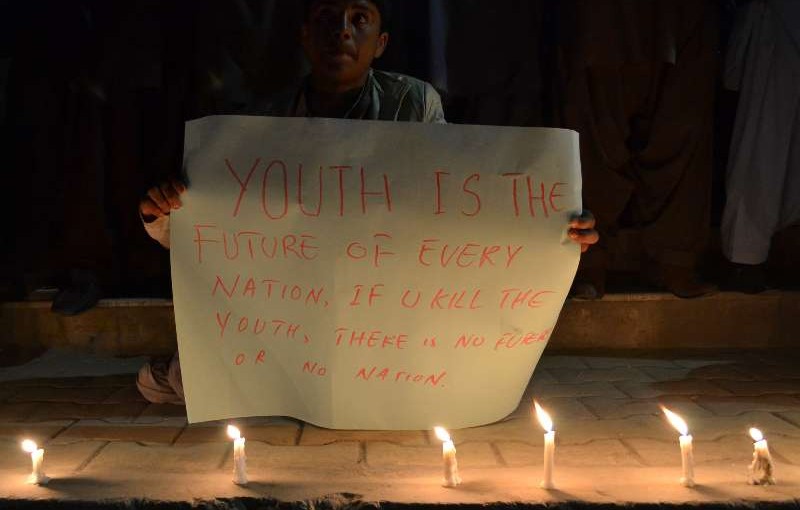 YOUTH IS THE
FUTURE OF EVERY
NATION. IF U KILL THE
YOUTH, THERE IS NO FUTER
OR NO NATION.